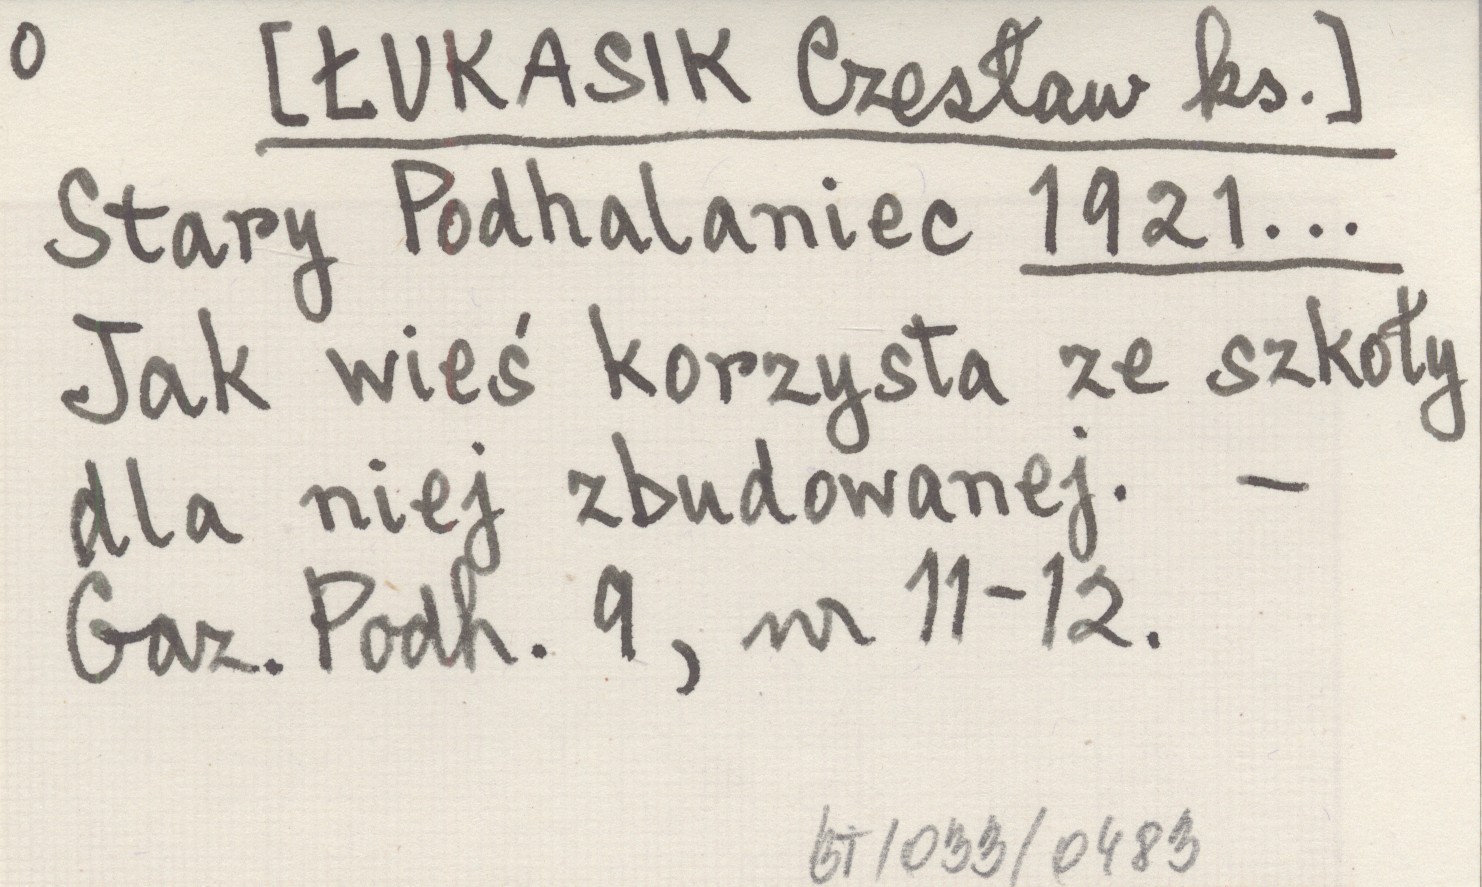 0 [ŁUKASIK Czesław ks.]
Stary Podhalaniec 1921...
Jak wieś korzysta ze szkoły
dla niej zbudowanej. –
Gaz. Podh. 9, nr 11-12.
BT/033/0483